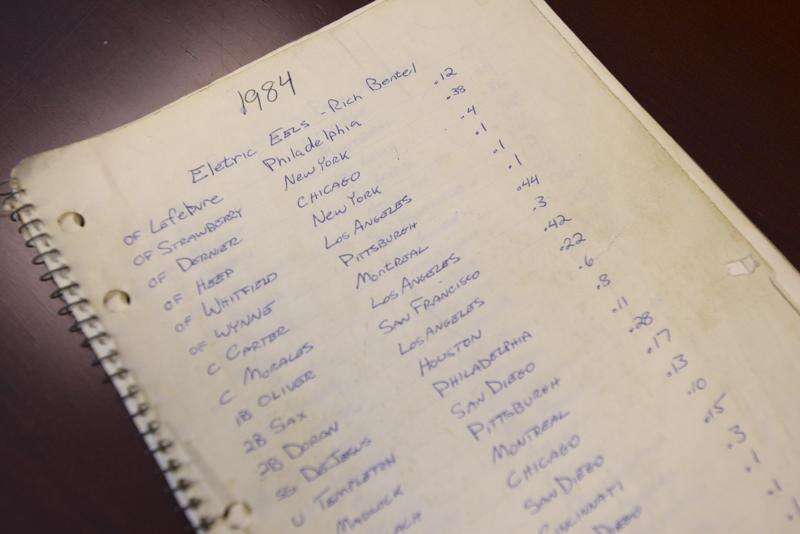 1984
Eletric Eels - Rich Bentel
OF Lefebure Philadelphia .12
OF STRAWBERRY New York .38
OF DERNIER CHICAGO .4
OF HEEP New York .1
OF WHITFIELD LOS ANGELES .1
OF WYNNE PITTSBURGH .1
C CARTER MONTREAL .44
C MORALES LOS ANGELES .3
1B OLIVER SAN FRANCISCO .42
2B SAX LOS ANGELES .22
2B DORAN HOUSTON .6
SS DEJESUS PHILADELPHIA .8
U TEMPLETON SAN DIEGO .11
MADLOCK PITTSBURGH .28
ACH MONTREAL .17
CHICAGO .13
SAN DIEGO .10
CINCINNATI .15
DIEGO .3
.1
.1